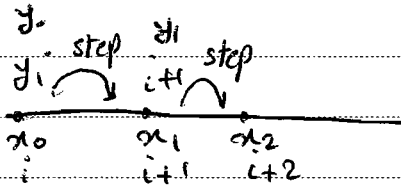 y. y1
y1 step i+1 step
x0 x1 x2
i i+1 i+2